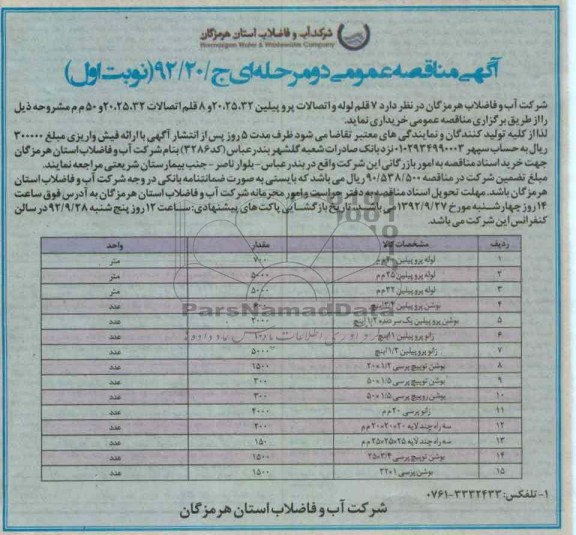 شرکت آب و فاضلاب استان هرمزگان
Hormozgan Water & Wastewater Company
آگهی مناقصه عمومی دو مرحله‌ای ج/۹۲/۲۰ (نوبت اول)
شرکت آب و فاضلاب هرمزگان در نظر دارد ۷ قلم لوله و اتصالات پروپیلین ۲۰،۲۵،۳۲ و ۸ قلم اتصالات ۲۰،۲۵،۳۲ و ۵۰ م م مشروحه ذیل
را از طریق برگزاری مناقصه عمومی خریداری نماید.
لذا از کلیه تولید کنندگان و نمایندگی های معتبر تقاضا می شود ظرف مدت ۵ روز پس از انتشار آگهی با ارائه فیش واریزی مبلغ ۳۰۰۰۰۰
ریال به حساب سپهر ۰۱۰۲۹۳۴۹۹۰۰۰۳ نزد بانک صادرات شعبه گلشهر بندرعباس (کد ۳۲۸۶) بنام شرکت آب و فاضلاب استان هرمزگان
جهت خرید اسناد مناقصه به امور بازرگانی این شرکت واقع در بندرعباس - بلوار ناصر - جنب بیمارستان شریعتی مراجعه نمایند.
مبلغ تضمین شرکت در مناقصه ۹۰/۵۳۸/۵۰۰ ریال می باشد که بایستی به صورت ضمانتنامه بانکی در وجه شرکت آب و فاضلاب استان
هرمزگان باشد. مهلت تحویل اسناد مناقصه به دفتر حراست و امور محرمانه شرکت آب و فاضلاب استان هرمزگان به آدرس فوق ساعت
۱۴ روز چهارشنبه مورخ ۱۳۹۲/۹/۲۷ می باشد. تاریخ بازگشایی پاکت های پیشنهادی: ساعت ۱۲ روز پنج شنبه ۹۲/۹/۲۸ در سالن
کنفرانس این شرکت می باشد.
ردیف مشخصات کالا مقدار واحد
۱ لوله پروپیلین ۷۰۰ متر
۲ لوله پروپیلین ۲۵ م م ۵۰۰۰ متر
۳ لوله پروپیلین ۳۲ م م ۵۰۰۰ متر
۴ بوشن پروپیلین عدد
۵ بوشن پروپیلین یک سر دنده ۱/۲ اینچ ۲۰۰۰ عدد
۶ زانو پروپیلین ۱ اینچ عدد
۷ زانو پروپیلین ۱/۲ اینچ ۵۰۰۰ عدد
۸ بوشن توپیچ پرسی ۱/۲*۲۰ ۱۵۰۰ عدد
۹ بوشن توپیچ پرسی ۱/۵*۵۰ ۳۰۰ عدد
۱۰ بوشن روپیچ پرسی ۱/۵*۵۰ ۳۰۰ عدد
۱۱ زانو پرسی ۲۰ م م ۴۰۰۰ عدد
۱۲ سه راه چند لایه ۲۰*۲۰*۲۰ م م ۲۰۰ عدد
۱۳ سه راه چند لایه ۲۵*۲۵*۲۵ م م ۱۵۰ عدد
۱۴ بوشن توپیچ پرسی ۳/۴*۲۵ ۱۵۰۰ عدد
۱۵ بوشن پرسی ۱*۳۲ ۱۵۰۰ عدد
ParsNamadData
۱- تلفکس: ۳۳۳۲۴۳۳-۰۷۶۱
شرکت آب و فاضلاب استان هرمزگان